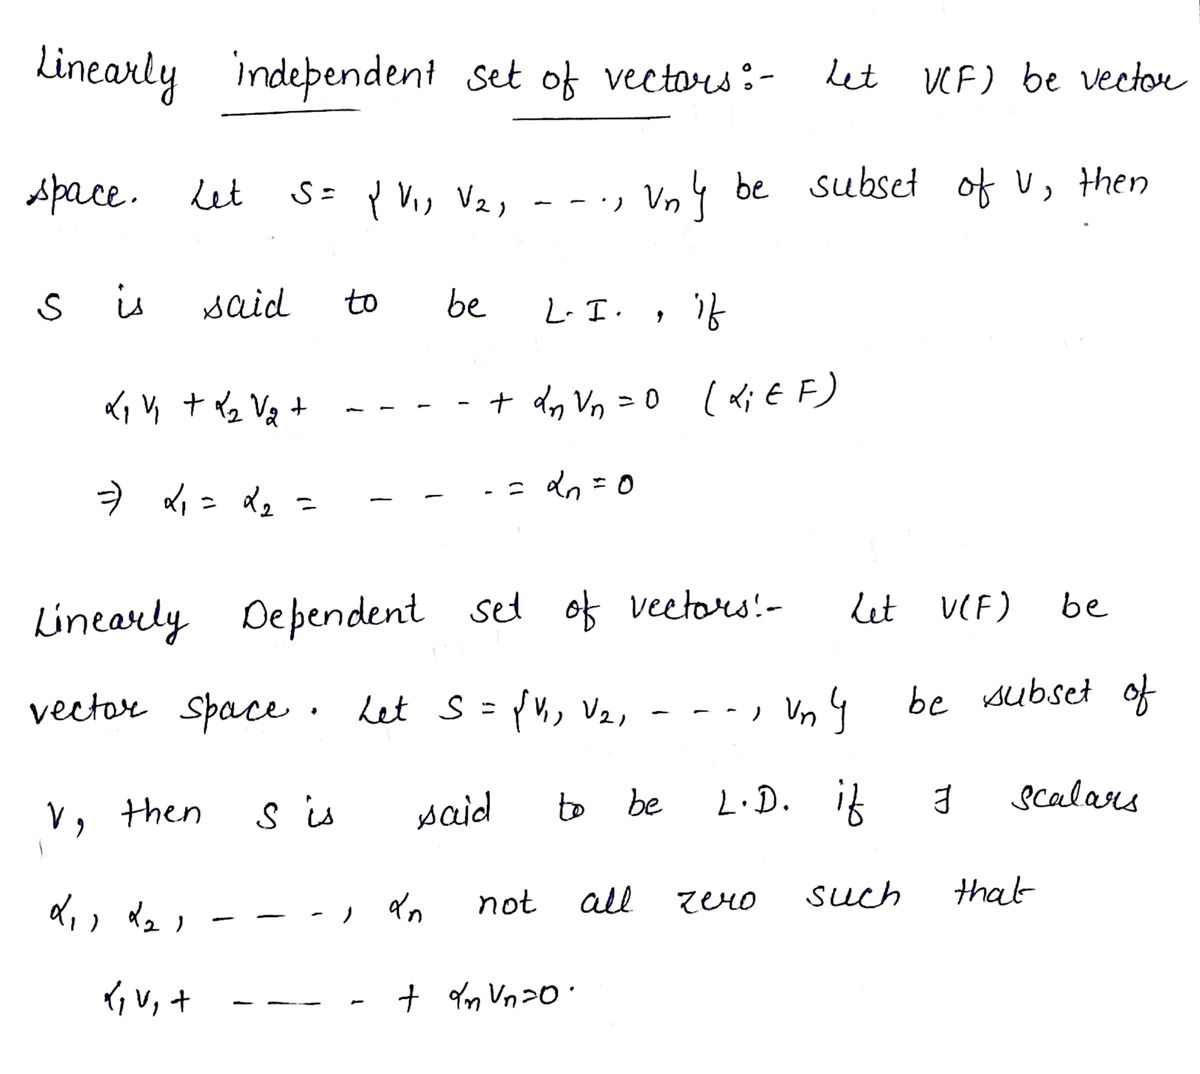 Linearly independent set of vectors:- Let V(F) be vector
space. Let S = { V₁, V₂, - - -, Vₙ } be subset of V, then
S is said to be L.I., if
α₁ V₁ + α₂ V₂ + - - - - + αₙ Vₙ = 0 (αᵢ ∈ F)
⇒ α₁ = α₂ = - - - = αₙ = 0
Linearly Dependent set of vectors:- Let V(F) be
vector space. Let S = {V₁, V₂, - - - -, Vₙ } be subset of
V, then S is said to be L.D. if ∃ scalars
α₁, α₂, - - - -, αₙ not all zero such that
α₁ V₁ + - - - + αₙ Vₙ = 0.